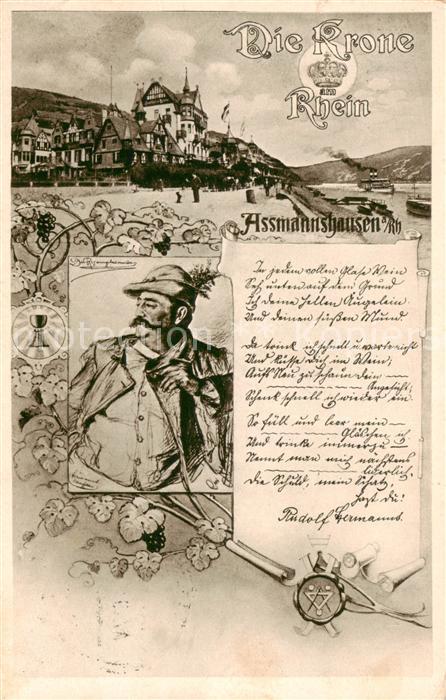 Die Krone
am
Rhein
Assmannshausen a/Rh
In jedem vollen Glase Wein
Seh unten auf dem Grund
Ich deine hellen Äugelein
Und deinen süßen Mund.
Da trink ich schnell u warte nicht
Und küsse Dich im Wein,
Aufs Neu zu schaun Dein
Angesicht,
Schenk schnell ich wieder ein.
So füll und leer mein
Gläschen ich
Und trinke immerzu
Nennt man mich nächstens
liederlich,
Die Schuld, mein Schatz,
hast Du!
Rudolf Hermanns.